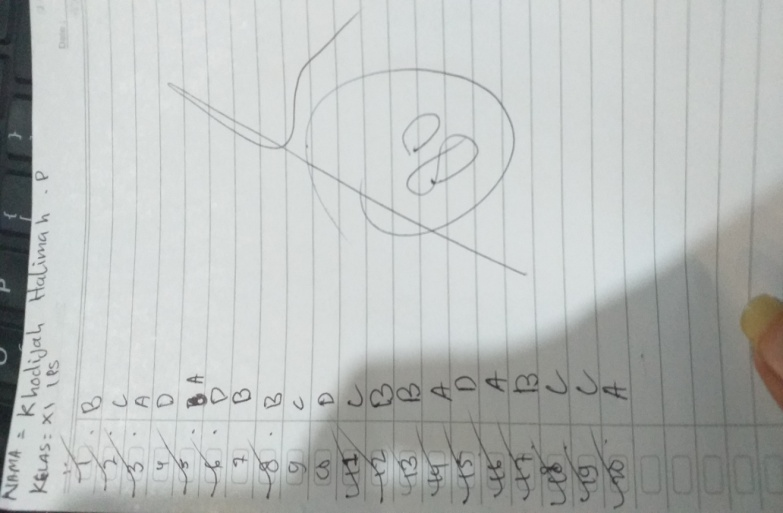 NAMA = Khodijah Halimah . P
KELAS: XI IPS
1. B
2. C
3. A
4 D
5. A
6. D
7 B
8. B
9 C
10 D
11 C
12 B
13 B
14 A
15 D
16 A
17. B
18. C
19 C
20. A